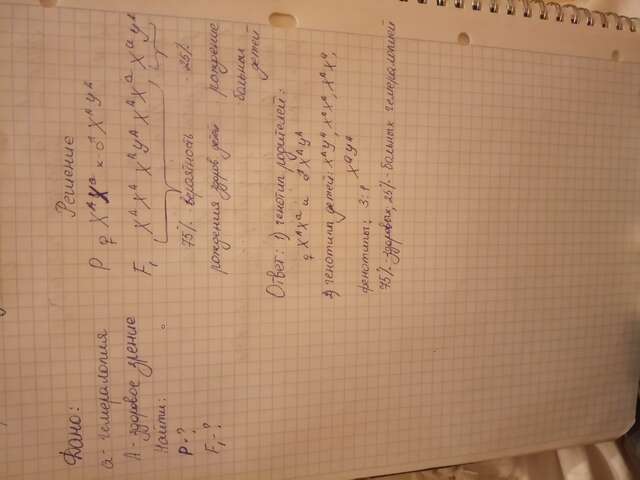 Дано:
а - гемералопия
А - здоровое зрение
Найти:
P - ?
F₁ - ?
Решение
P ♀ XᴬXᵃ × ♂ XᴬYᴬ
F₁ XᴬXᴬ XᴬYᴬ XᴬXᵃ XᵃYᴬ
75% вероятность - 25%
рождения здоров детей рождение
больных
детей
Ответ: 1) генотип родителей:
♀ XᴬXᵃ и ♂ XᴬYᴬ
2) генотипы детей: XᴬYᴬ, XᴬXᴬ, XᴬXᵃ,
XᵃYᴬ
фенотипы: 3:1
75% - здоровых, 25% - больных гемералопией